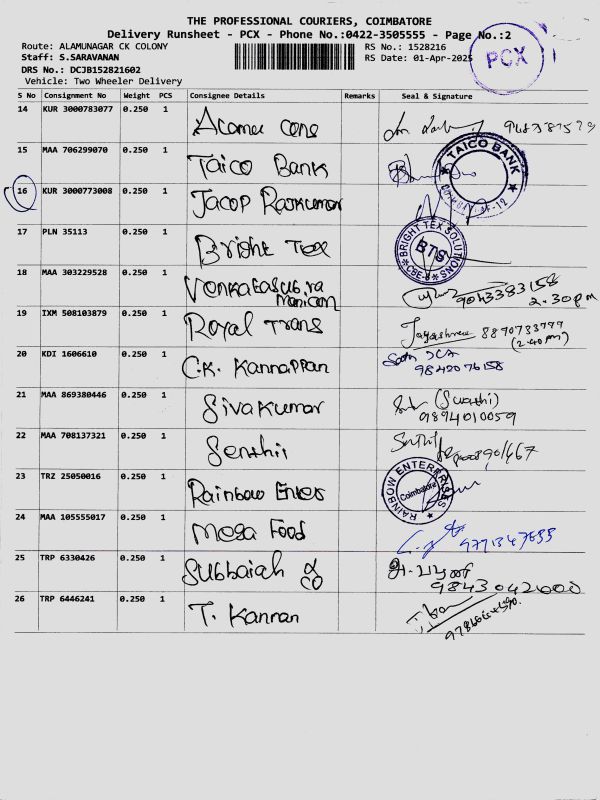 THE PROFESSIONAL COURIERS, COIMBATORE
Delivery Runsheet - PCX - Phone No.:0422-3505555 - Page No.:2
Route: ALAMUNAGAR CK COLONY
RS No.: 1528216
Staff: S.SARAVANAN
RS Date: 01-Apr-2025
PCX
DRS No.: DCJB152821602
Vehicle: Two Wheeler Delivery
S No Consignment No Weight PCS Consignee Details Remarks Seal & Signature
14 KUR 3000783077 0.250 1 Acamu cone
15 MAA 706299070 0.250 1 Taico Bank
TAICO BANK
16 KUR 3000773008 0.250 1 Jacop Raskumar
17 PLN 35113 0.250 1 Bright Tex
BRIGHT TEX SOLUTIONS
BTS
CBE-8
18 MAA 303229528 0.250 1 Venkatasubra
manian
9043383158
2.30pm
19 IXM 508103879 0.250 1 Royal Trans Jayashree 8890733777
(2.40pm)
20 KDI 1606610 0.250 1 C.K. Kannappan
9842076158
21 MAA 869380446 0.250 1 Sivakumar (Swathi)
9894010059
22 MAA 708137321 0.250 1 Senthil Senthil
23 TRZ 25050016 0.250 1 Rainbow Enter
RAINBOW ENTERPRISES
Coimbatore
24 MAA 105555017 0.250 1 Mega Food
25 TRP 6330426 0.250 1 Subbaiah & co
9843042000
26 TRP 6446241 0.250 1 T. Kannan